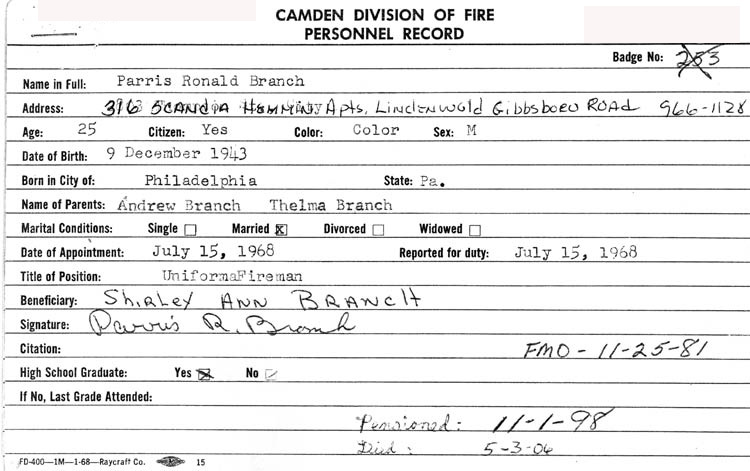 CAMDEN DIVISION OF FIRE
PERSONNEL RECORD
Badge No: 253
Name in Full: Parris Ronald Branch
Address: 316 SCANDIA Apts, Lindenwold Gibbsboro ROAD 966-1128
Age: 25 Citizen: Yes Color: Color Sex: M
Date of Birth: 9 December 1943
Born in City of: Philadelphia State: Pa.
Name of Parents: Andrew Branch Thelma Branch
Marital Conditions: Single Married Divorced Widowed
Date of Appointment: July 15, 1968 Reported for duty: July 15, 1968
Title of Position: UniformaFireman
Beneficiary: Shirley Ann Branch
Signature: Parris R. Branch
Citation: FMO - 11-25-81
High School Graduate: Yes No
If No, Last Grade Attended:
Pensioned: 11-1-98
Died: 5-3-06
FD-400—1M—1-68—Raycraft Co. 15